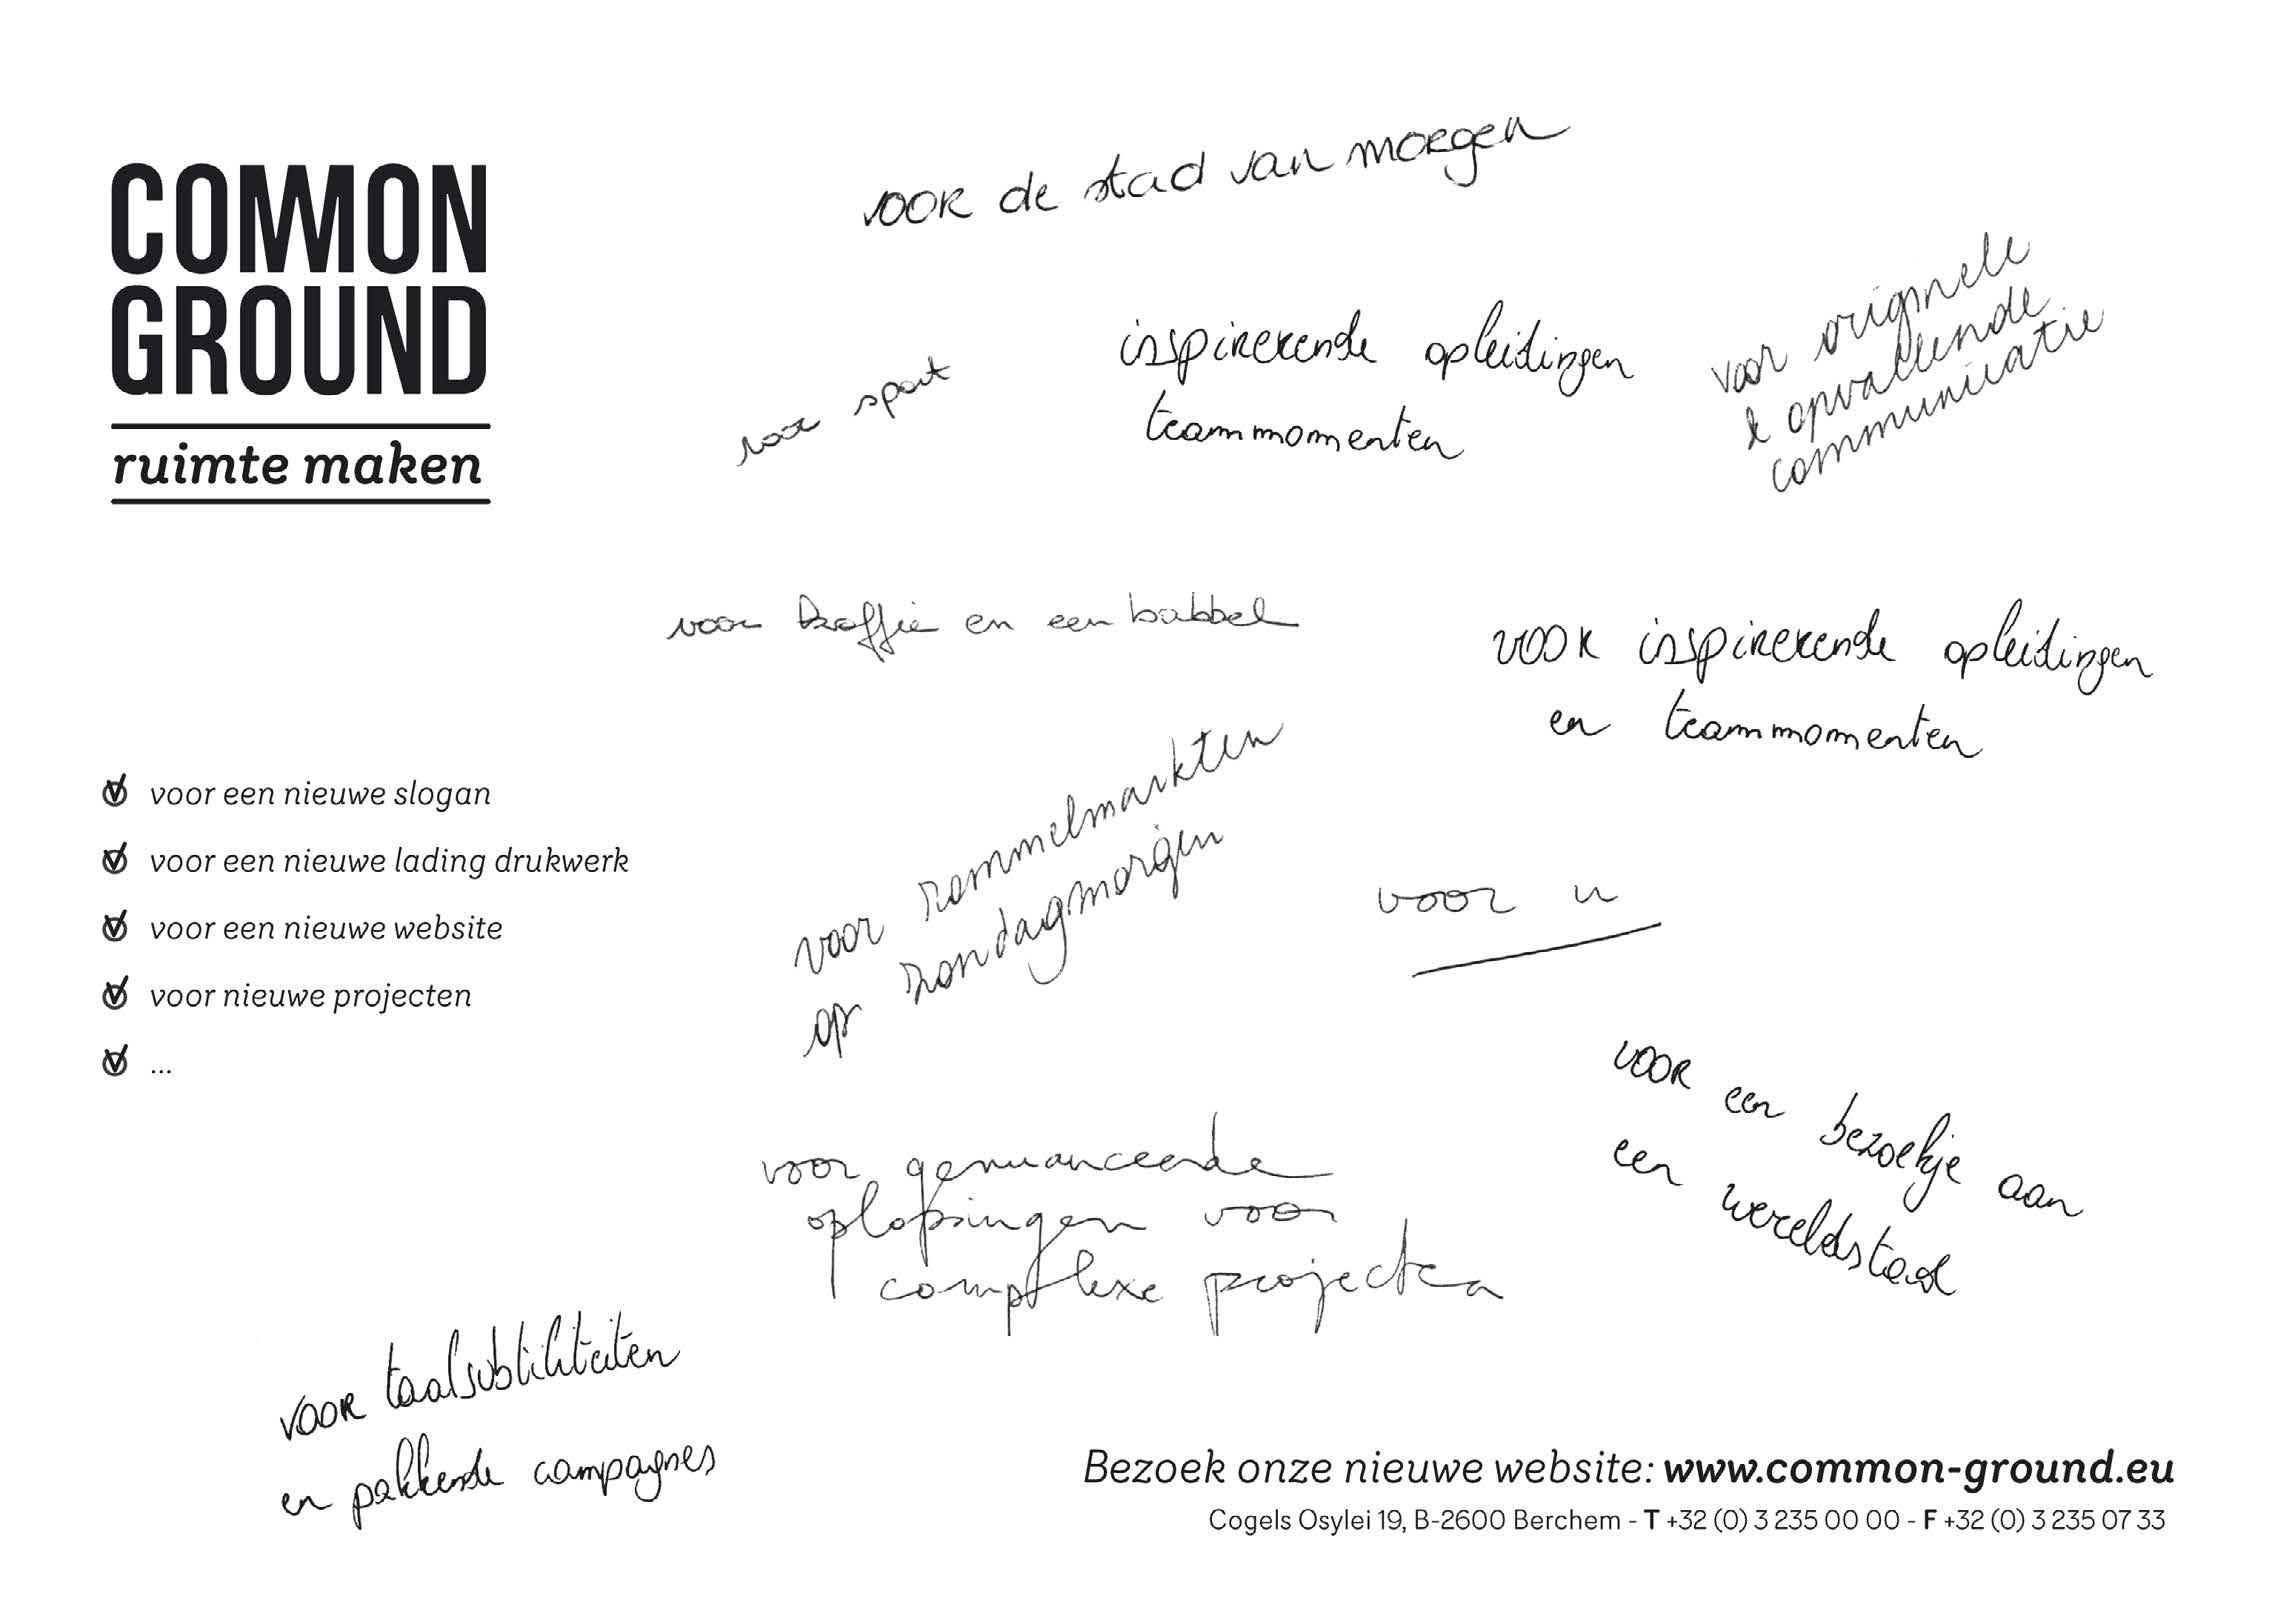 COMMON
GROUND
ruimte maken
voor de stad van morgen
voor sport
inspirerende opleidingen
teammomenten
voor originele
& opvallende
communicatie
voor koffie en een babbel
voor inspirerende opleidingen
en teammomenten
voor een nieuwe slogan
voor een nieuwe lading drukwerk
voor een nieuwe website
voor nieuwe projecten
...
voor rommelmarkten
op zondagmorgen
voor u
voor een bezoekje aan
een wereldstad
voor genuanceerde
oplossingen voor
complexe projecten
voor taalsubtiliteiten
en pakkende campagnes
Bezoek onze nieuwe website: www.common-ground.eu
Cogels Osylei 19, B-2600 Berchem - T +32 (0) 3 235 00 00 - F +32 (0) 3 235 07 33